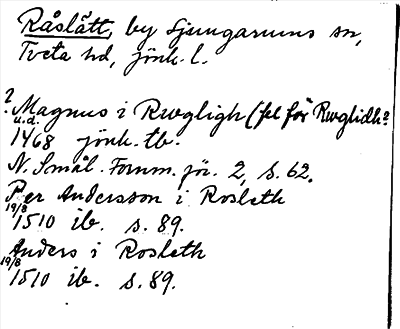 Råslätt, by Ljungarums sn,
Tveta hd, jönk. l.
? Magnus i Rwgligh (fel för Rwglidh?
u.d.
1468 jönk. tb.
N. Smål. Fornm.för. 2, s. 62.
Per Andersson i Rosleth
19/8
1510 ib. s. 89.
Anders i Rosleth
19/8
1510 ib. s. 89.